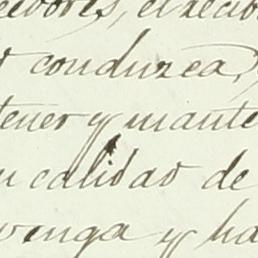 eedores, el recib
conduzca,
tener y mante
calidad de
venga y ha